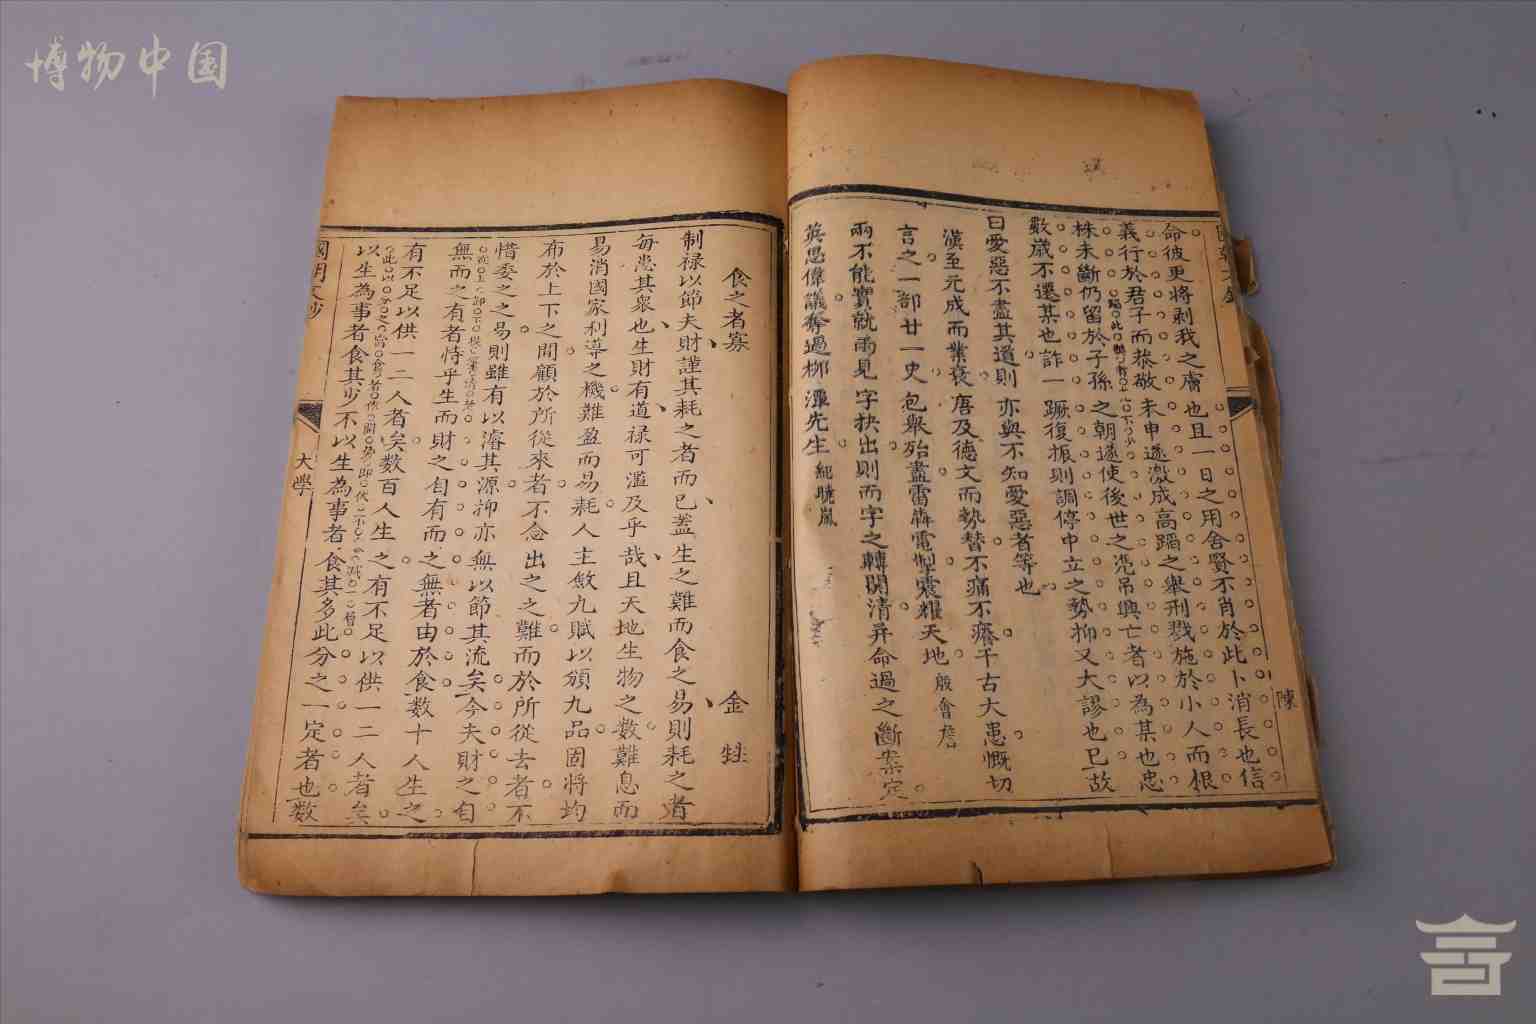 博物中国
陳
命彼更將剥我之膚也且一日之用舍賢不肖於此卜消長也信
義行於君子而恭敬未申遂激成高蹈之舉刑戮施於小人而根
株未斷仍留於子孫之朝遂使後世之憑吊興亡者以為某也忠
數歲不還某也詐一蹶復振則調停中立之勢抑又大謬也已故
曰愛惡不盡其道則亦與不知愛惡者等也
漢至元成而業衰唐及德文而勢替不痛不癢千古大患慨切
言之一部廿一史包舉殆盡雷犇電掣震耀天地 殷會詹
兩不能實就兩見字抉出則而字之轉關清弄命過之斷案定
英思偉議奪過柳潭先生 紀曉嵐
食之者寡 金甡
制禄以節夫財謹其耗之者而已蓋生之難而食之易則耗之者
每患其衆也生財有道禄可濫及乎哉且天地生物之數難息而
易消國家利導之機難盈而易耗人主斂九賦以頒九品固將均
布於上下之間顧於所從來者不念出之之難而於所從去者不
惜委之之易則雖有以濬其源抑亦無以節其流矣今夫財之自
無而之有者恃乎生而財之自有而之無者由於食數十人生之
有不足以供一二人者矣數百人生之有不足以供一二人者矣
以生為事者食其少不以生為事者食其多此分之一定者也數
國朝文鈔
大學